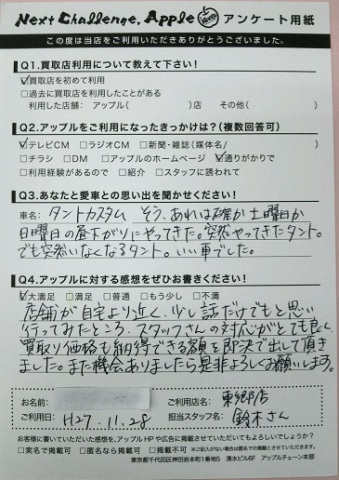 Next Challenge. Apple アンケート用紙
この度は当店をご利用いただきありがとうございました。
Q1.買取店利用について教えて下さい!
☑買取店を初めて利用
□過去に買取店を利用したことがある
利用した店舗: アップル( )店 その他( )
Q2.アップルをご利用になったきっかけは?(複数回答可)
☑テレビCM □ラジオCM □新聞・雑誌(媒体名/ )
□チラシ □DM □アップルのホームページ ☑通りがかりで
□利用経験があるので □紹介 □スタッフに誘われて
Q3.あなたと愛車との思い出を聞かせください!
車名: タントカスタム そう、あれは確か土曜日か
日曜日の昼下がりにやってきた。突然やってきたタント。
でも突然いなくなるタント。いい車でした。
Q4.アップルに対する感想をぜひお書きください!
☑大満足 □満足 □普通 □もう少し □不満
店舗が自宅より近く、少し話だけでもと思い
行ってみたところ、スタッフさんの対応がとても良く
買取り価格も納得できる額を即決で出して頂き
ました。また機会ありましたら是非よろしくお願いします。
お名前: ご利用店名: 東郷店
ご利用日: H27.11.28 担当スタッフ名: 鈴木さん
お客様に書いていただいた感想を、アップルHPや広告に掲載させていただいてもよろしいでしょうか?
□実名で掲載可 □匿名なら掲載可 □掲載不可 ※ご記入がない場合は匿名での掲載とさせていただきます。
東京都千代田区神田岩本町1番地5 清水ビル6F アップルチェーン本部